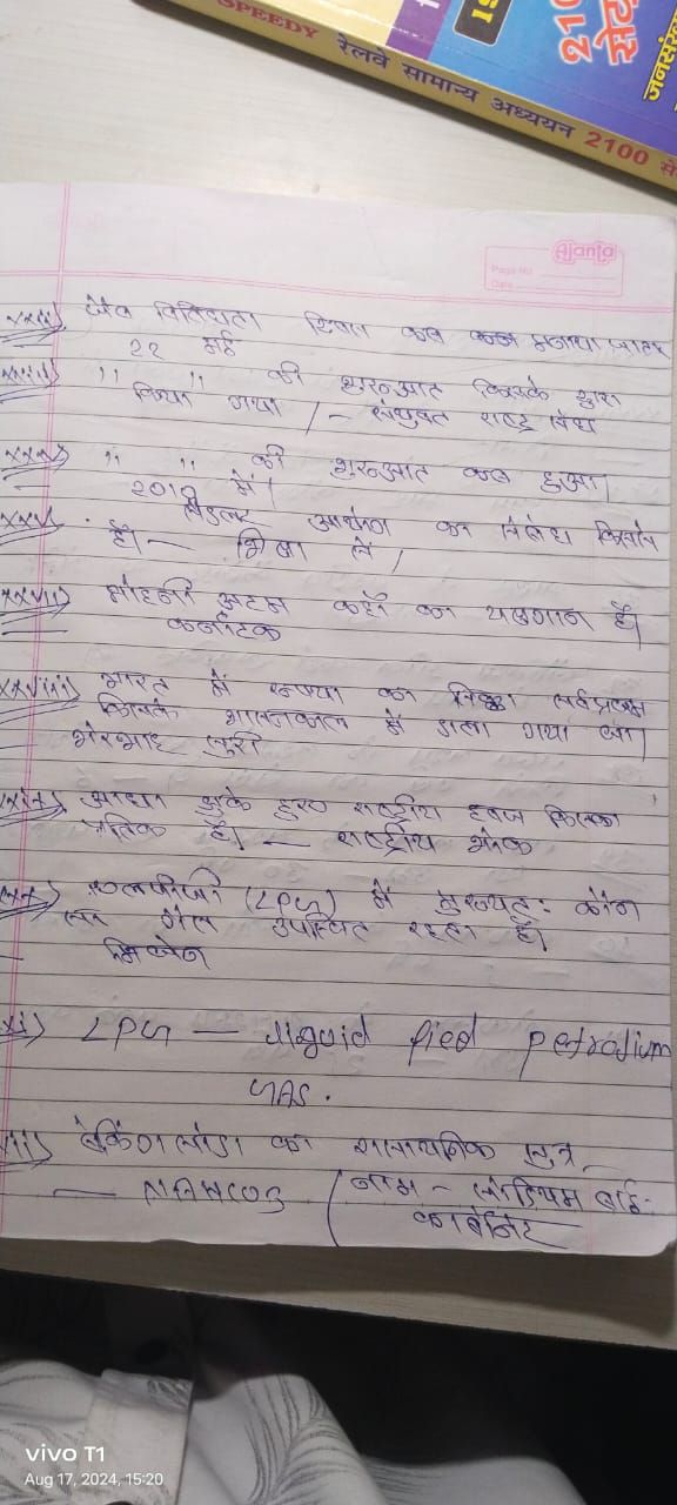 SPEEDY रेलवे सामान्य अध्ययन 2100 से
Ajanta
Page No
Date
जैव विविधता दिवस कब कब मनाया जाता
22 मई
" " की शुरुआत किसके द्वारा
किया गया / - संयुक्त राष्ट्र संघ
" " की शुरुआत कब हुआ।
में।
आयोग का विरोध किसने
है। —
xxvii) मोहनी अटम कहाँ का यक्षगान है।
कर्नाटक
xxviii) भारत में रुपया का सिक्का सर्वप्रथम
किसके शासनकाल में डाला गया था।
शेरशाह सुरी
आधा झुके हुए राष्ट्रीय ध्वज किसका
प्रतिक है। — राष्ट्रीय शोक
एलपीजी (LPG) में मुख्यत: कौन
सा गैस उपस्थित रहता है।
xi) LPG — liquid fied petrolium
GAS.
बेकिंग सोडा का रासायनिक सुत्र
— NAHCO3 / नाम - सोडियम बाई-
कार्बोनेट
vivo T1
Aug 17, 2024, 15:20